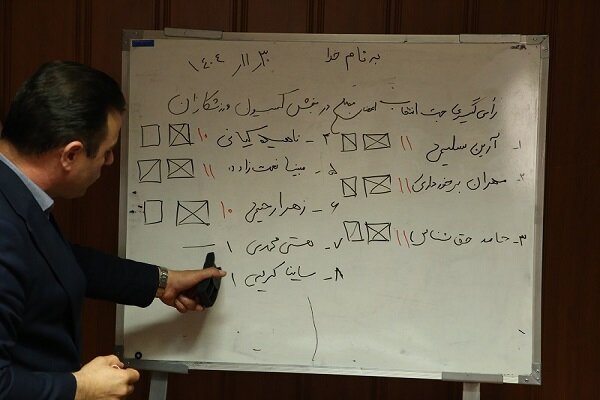 به نام خدا
۱۴۰۴/۱۱/۳۰
رأی گیری جهت انتخاب اعضای در بخش کمیسیون ورزشکاران
۱- آرین سلیمی ۱۱
۲- مهران برخورداری ۱۱
۳- حامد حق شناس ۱۱
۴- ناهید کیانی ۱۰
۵- مبینا نعمت زاده ۱۱
۶- زهرا رحیمی ۱۰
۷- هستی محمدی ۱
۸- ساینا کریمی ۱